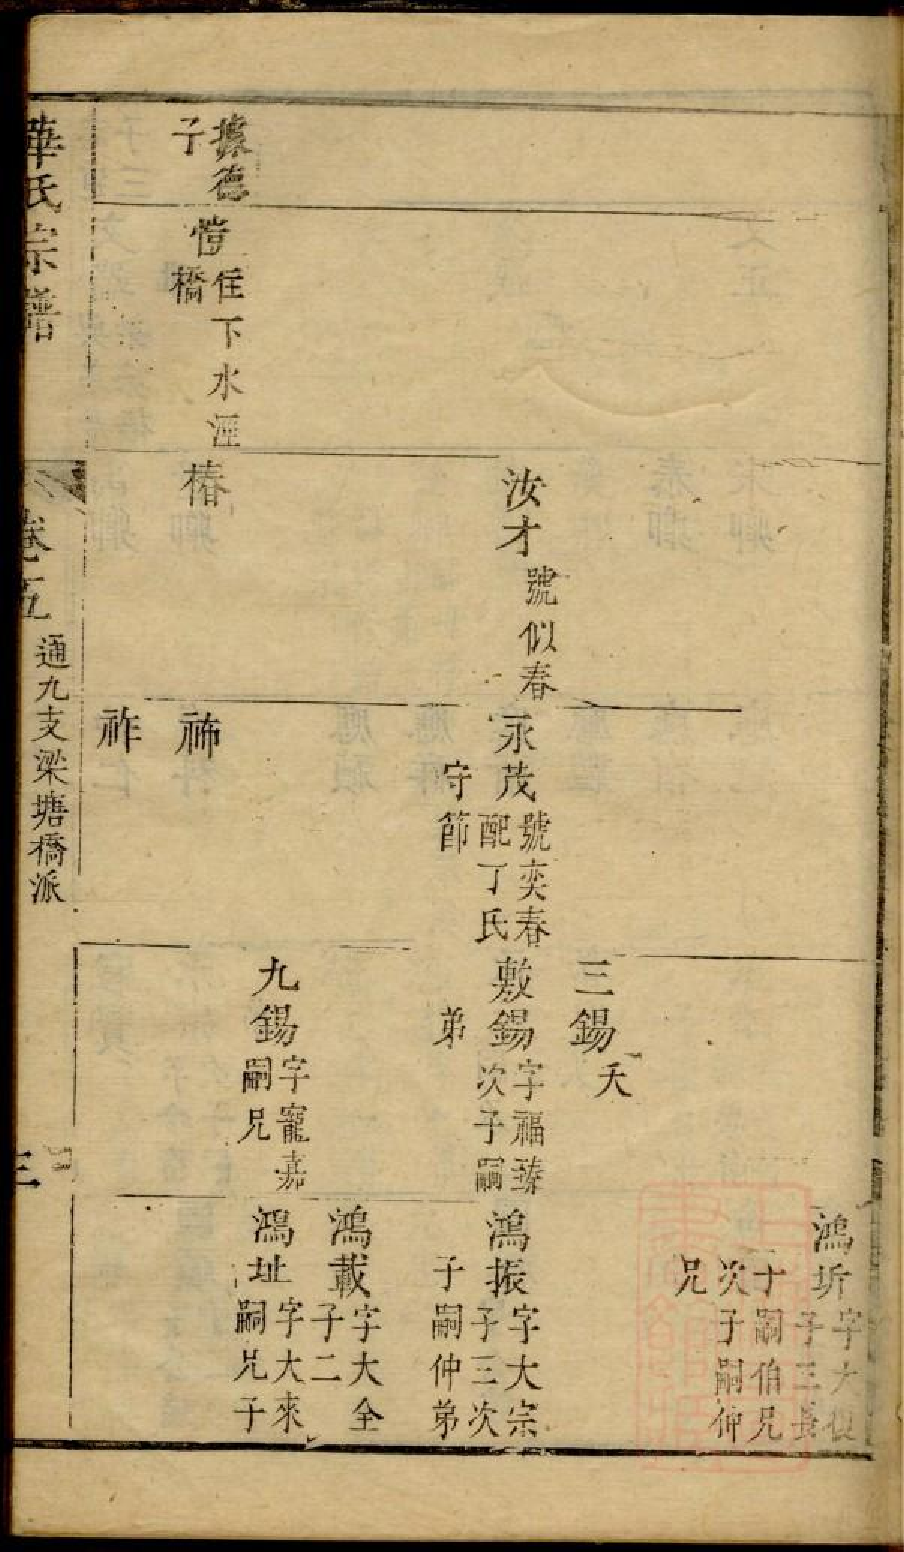 據德
子
愷
住下水涇
橋
汝才
號似春
椿
永茂
號奕春
配丁氏
守節
祚
三錫
夭
敷錫
字福臻
次子嗣
弟
九錫
字寵嘉
嗣兄
鴻圻
子三長
子嗣伯兄
次子嗣仲
兄
鴻振
字大宗
子三次
子嗣仲弟
鴻載
字大全
子二
鴻址
字大來
嗣兄子
華氏宗譜
卷五
通九支梁塘橋派
三